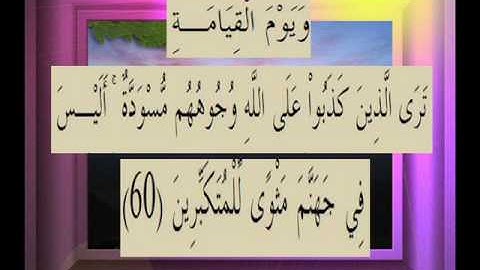 وَيَوْمَ الْقِيَامَـــةِ
تَرَى الَّذِينَ كَذَبُواْ عَلَى اللَّهِ وُجُوهُهُم مُّسْوَدَّةٌ ۚ أَلَيْـــسَ
فِي جَهَنَّمَ مَثْوًى لِّلْمُتَكَبِّرِينَ (60)